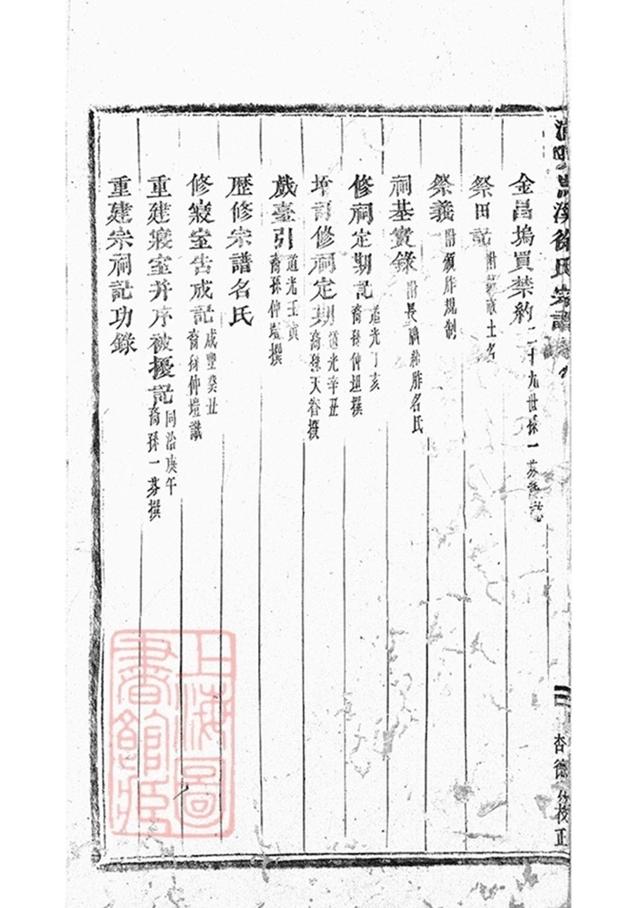 溪徐氏宗譜
金昌塢買禁約 二十九世孫一芬
祭田記 土名
祭義 附頒胙規制
祠基實錄 附長 胙名氏
修祠定期記 道光丁亥 裔孫仲塏撰
增訂修祠定期 道光辛丑 裔孫天眷撰
戲臺引 道光壬寅 裔孫仲塏撰
歷修宗譜名氏
修寢室告成記 咸豐癸丑 裔孫仲塏識
重建寢室并序被擾記 同治庚午 裔孫一芬撰
重建宗祠記功錄
校正
上海圖
書館藏